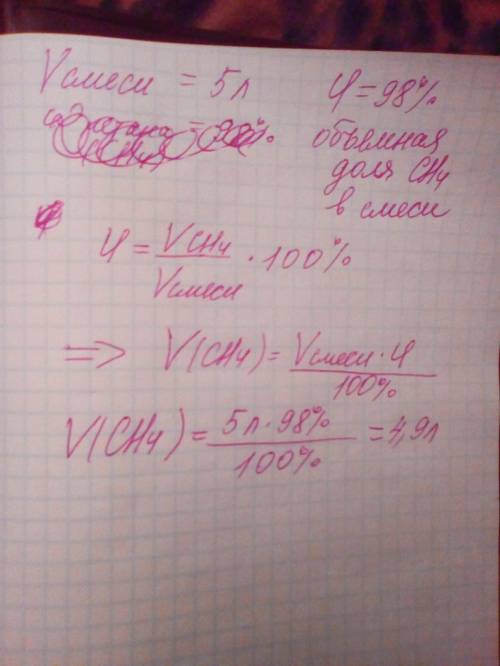 Vсмеси = 5л
φ = 98%
объёмная
доля CH4
в смеси
φ = VCH4 / Vсмеси · 100%
=> V(CH4) = Vсмеси · φ / 100%
V(CH4) = 5л · 98% / 100% = 4,9л